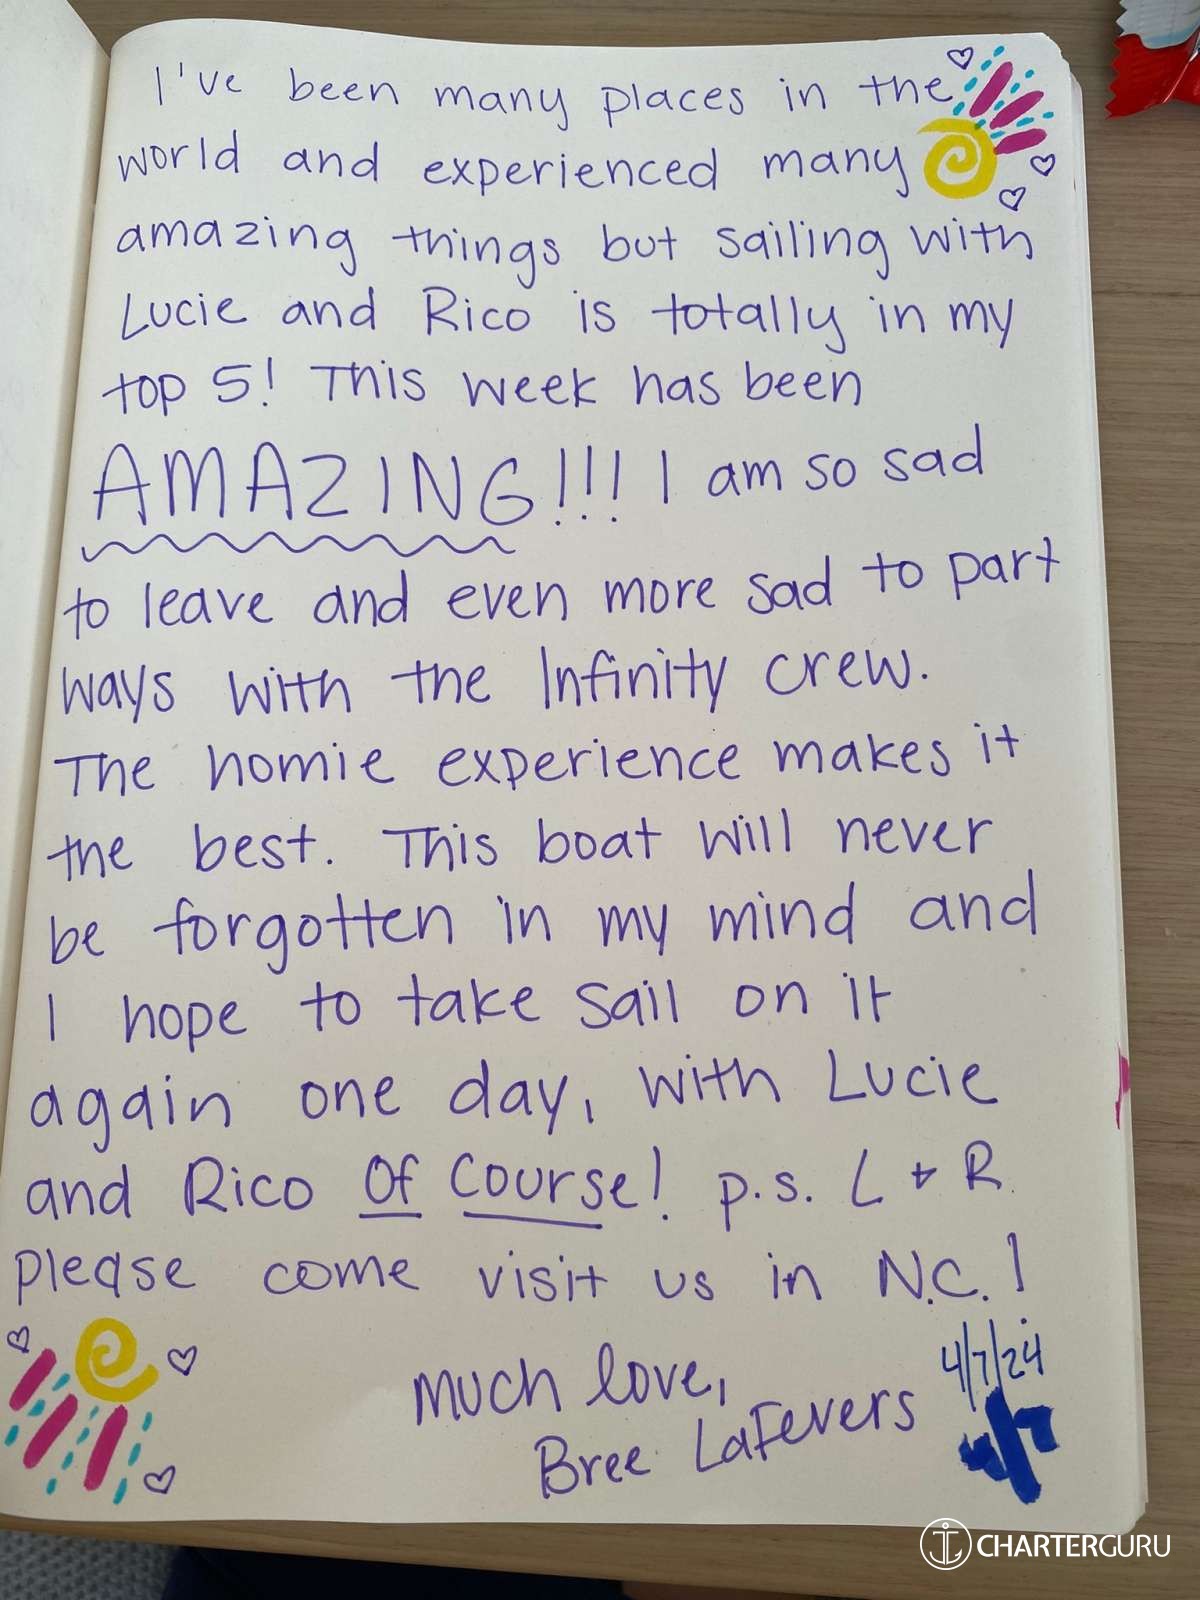 I've been many places in the
world and experienced many
amazing things but sailing with
Lucie and Rico is totally in my
top 5! This week has been
AMAZING!!! I am so sad
to leave and even more sad to part
ways with the Infinity crew.
The homie experience makes it
the best. This boat will never
be forgotten in my mind and
I hope to take sail on it
again one day, with Lucie
and Rico Of Course! p.s. L + R
please come visit us in N.C.!
Much love,
Bree LaFevers
4/7/24
CHARTERGURU